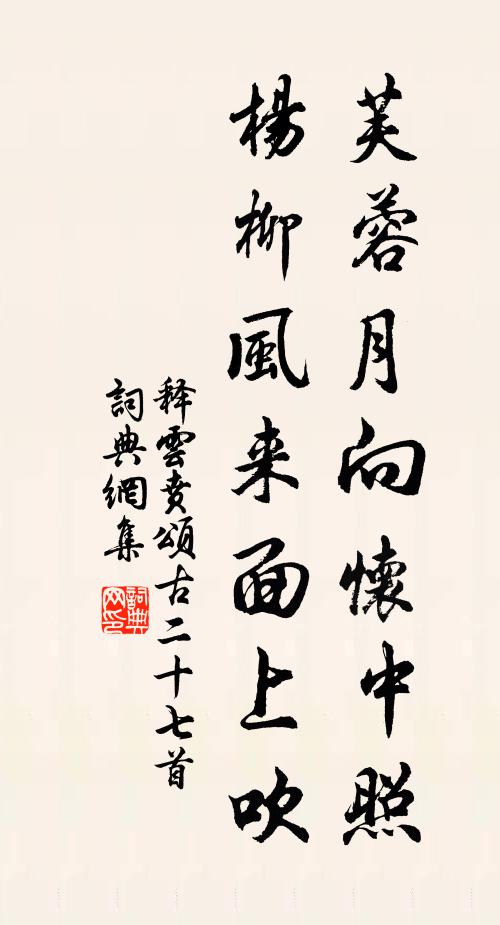 芙蓉月向懷中照
楊柳風来面上吹
释雲賁頌古二十七首
詞典網集
詞典网印